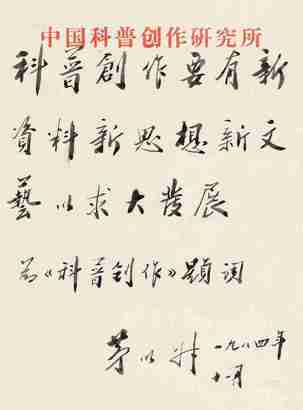 中国科普创作研究所
科普創作要有新
資料新思想新文
藝以求大發展
为《科普创作》题词
茅以升 一九八四年
十一月